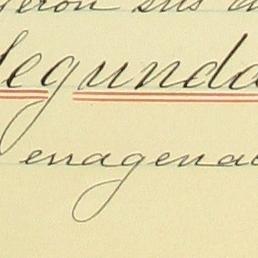 yeron sus d
Segunda
enagenac